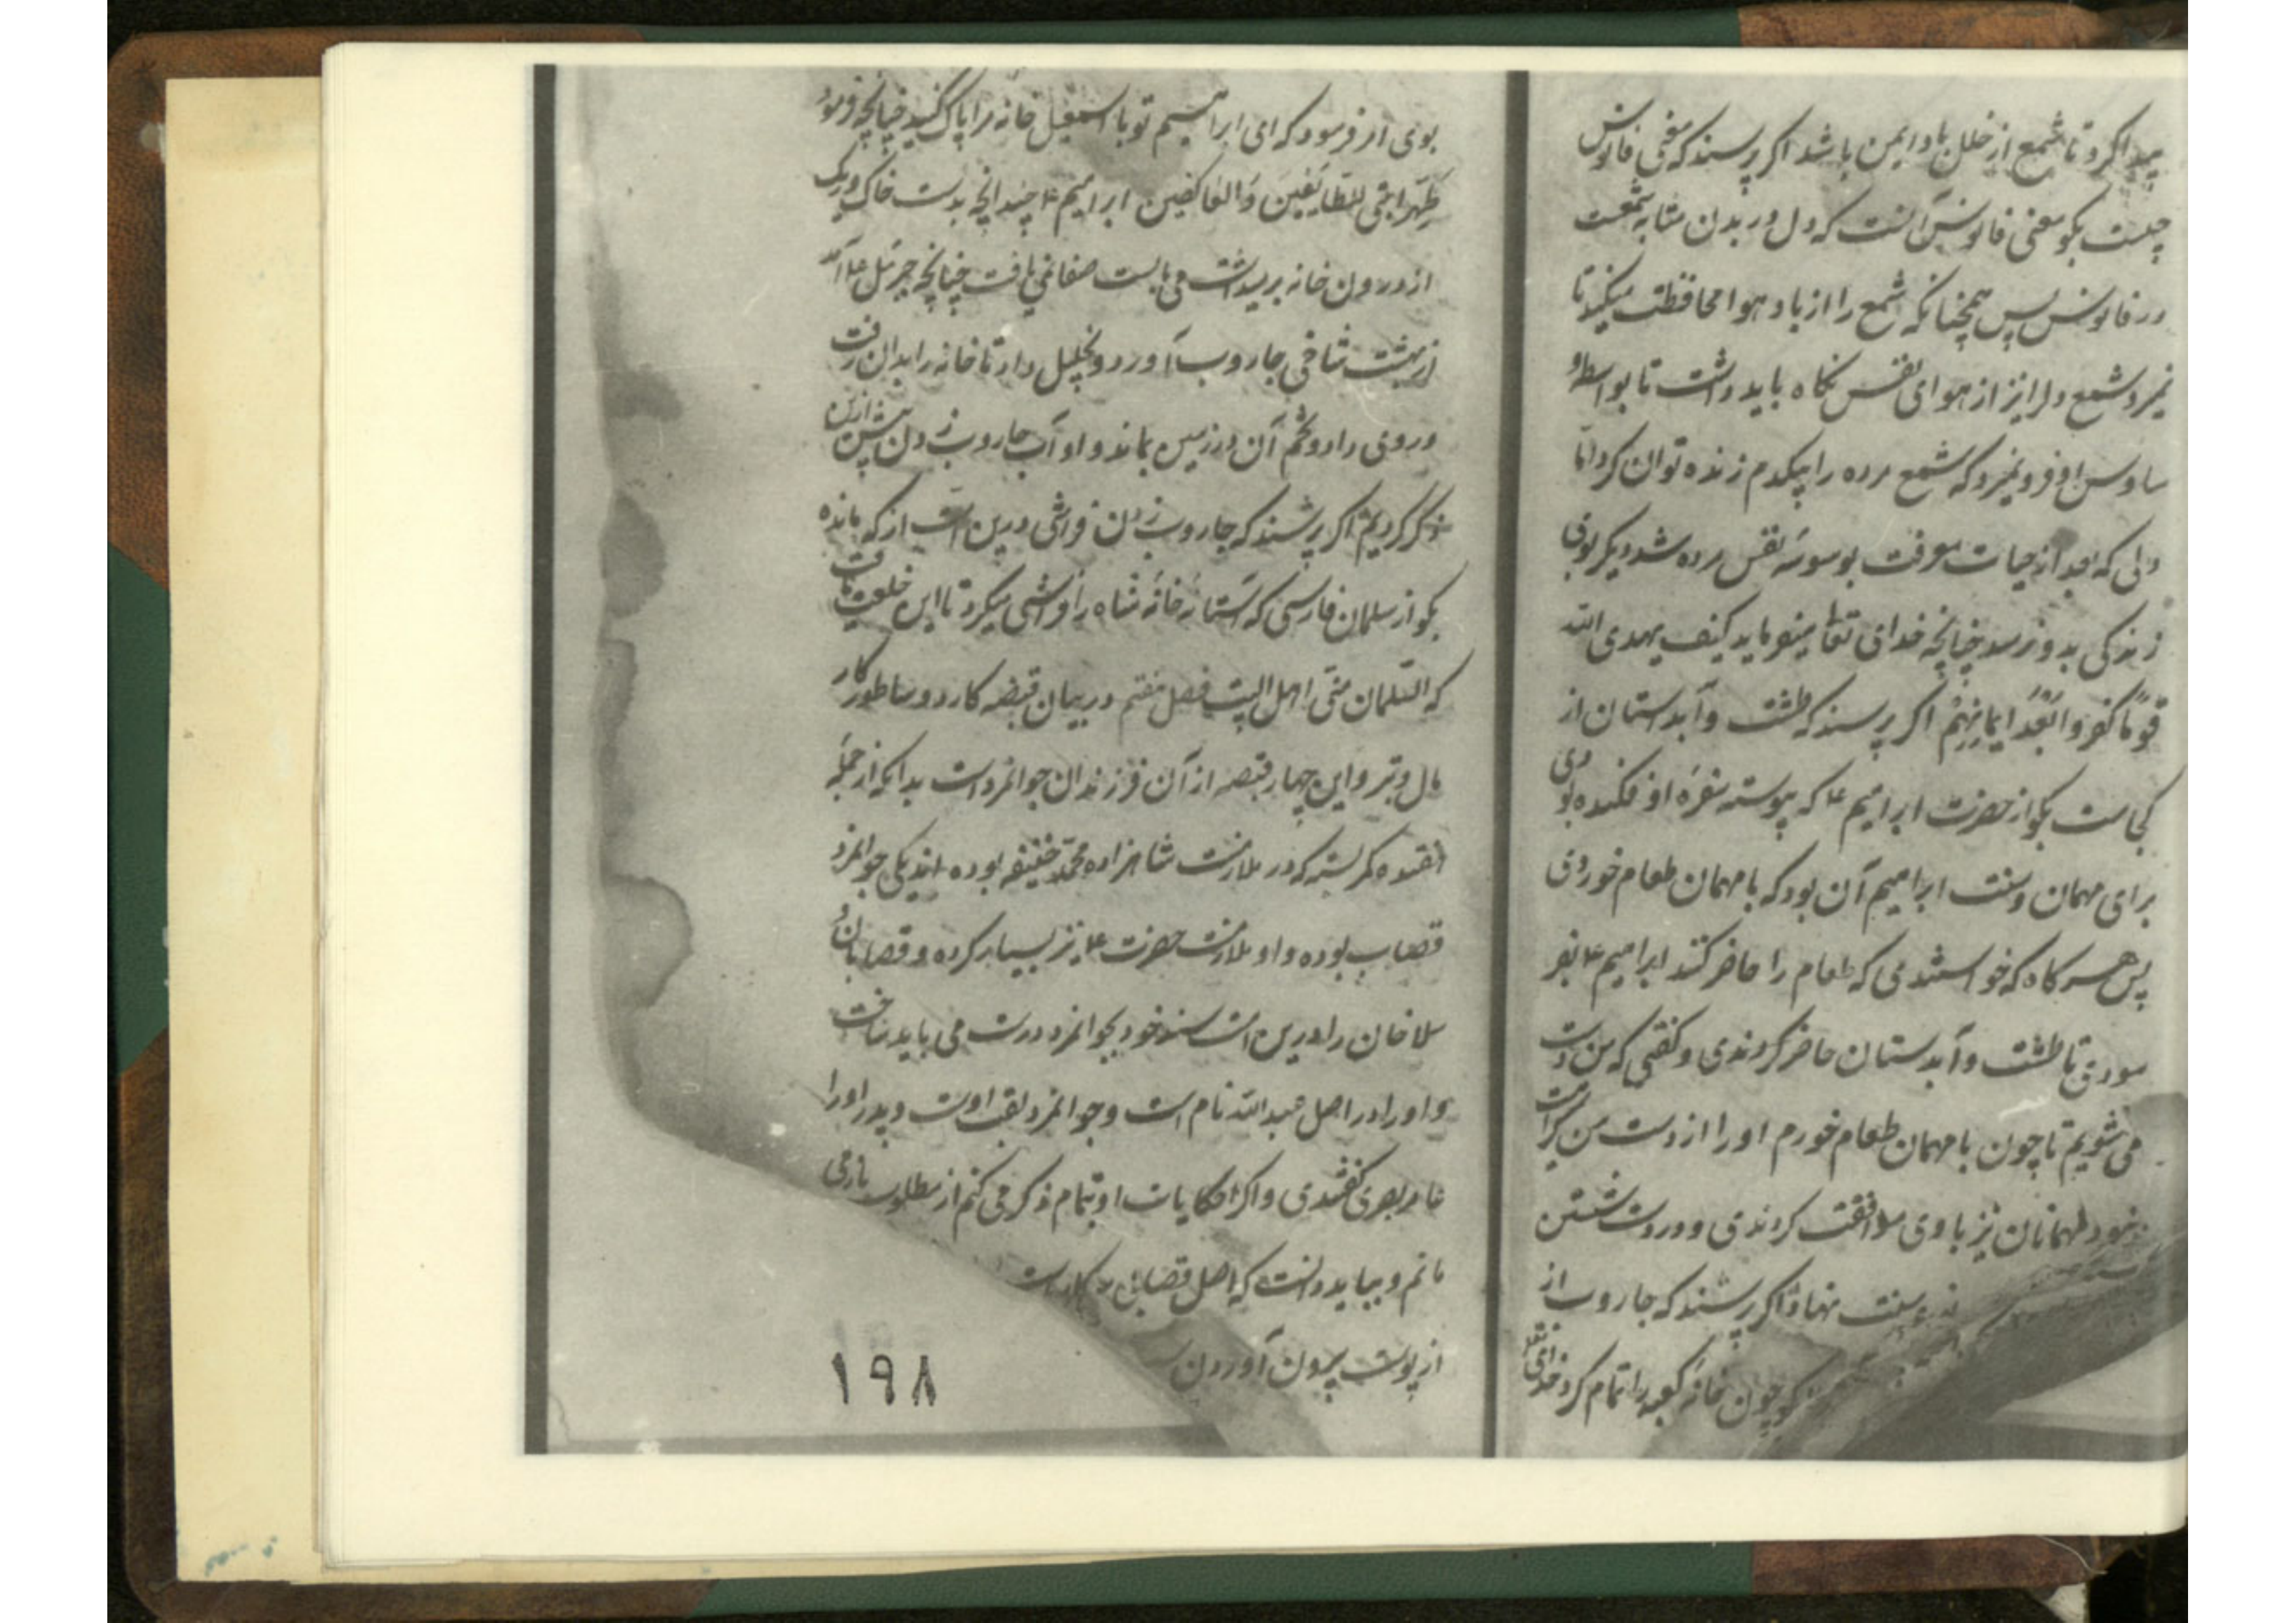 پیدا کرد تا شمع از خلل باد ایمن باشد اکر پرسند که معنی فانوس
چیست بکو معنی فانوس آنست که دل در بدن مشابه شمعست
در فانوس پس همچنانکه شمع را از باد هوا محافظت میکنند تا
نمیرد شمع دلرا نیز از هوای نفس نکاه باید داشت تا بواسطهٔ
وساوس او فرو نمیرد که شمع مرده را بیکدم زنده توان کرد اما
دلی که بعد از حیات معرفت بوسوسهٔ نفس مرده شد دیکر بوی
زندکی بدو نرسد چنانچه خدای تعا میفرماید کیف یهدی الله
قوما کفروا بعد ایمانهم اکر پرسند که طشت و آبدستان از
کجاست بکو از حضرت ابراهیم ع که پیوسته سفره او فکنده بودی
برای مهمان و سنت ابراهیم آن بود که با مهمان طعام خوردی
پس هر کاه که خواستندی که طعام را حاضر کنند ابراهیم ع بفر
مودی تا طشت و آبدستان حاضر کردندی و کفتی که من دست
می شویم تا چون با مهمان طعام خورم او را از دست من کراهت
نبود مهمانان نیز با وی موافقت کردندی و در دست شستن
سنت نهاد اکر پرسند که جاروب از
بکو چون خانه کعبه را تمام کرد خدای تعا
بوی امر فرمود که ای ابراهیم تو با اسمعیل خانه مرا پاک کنید چنانچه فرمود
طهرا بیتی للطائفین والعاکفین ابراهیم ع چندانچه بدست خاک و ریک
از درون خانه بر میداشت می بایست صفائی نیافت چنانچه جبرئل ع آمد
از بهشت شاخی جاروب آورد و بخلیل داد تا خانه را بدان رفت
و روی داد و تخم آن در زمین بماند و آداب جاروب زدن پیش ازین
ذکر کردیم اکر پرسند که جاروب زدن فراشی درین است از که مانده
بکو از سلمان فارسی که آستانه خانه شاه را فراشی میکرد تا این خلعت یافت
که السلمان منی اهل البیت فصل هفتم در بیان قبضه کارد و ساطور کار
مال و تبر و این چهار قبضه از آن فرزندان جوانمرد است بدانکه از جمله
هفده کمر بسته که در ملازمت شاهزاده محمد حنیفه بوده اند یکی جوانمرد
قصاب بوده و او ملازمت حضرت ع نیز بسیار کرده و قصابان و
سلاخان را درین است سند خود بجوانمرد درست می باید ساخت
و او را در اصل عبدالله نام است و جوانمرد لقب اوست و پدر او را
عامر بصری کفتندی و اکر حکایات او بتمام ذکر می کنم از مطلوب باز می
مانم و بباید دانست که اصل قصابی کارست
از پوست بیرون آوردن
۱۹۸